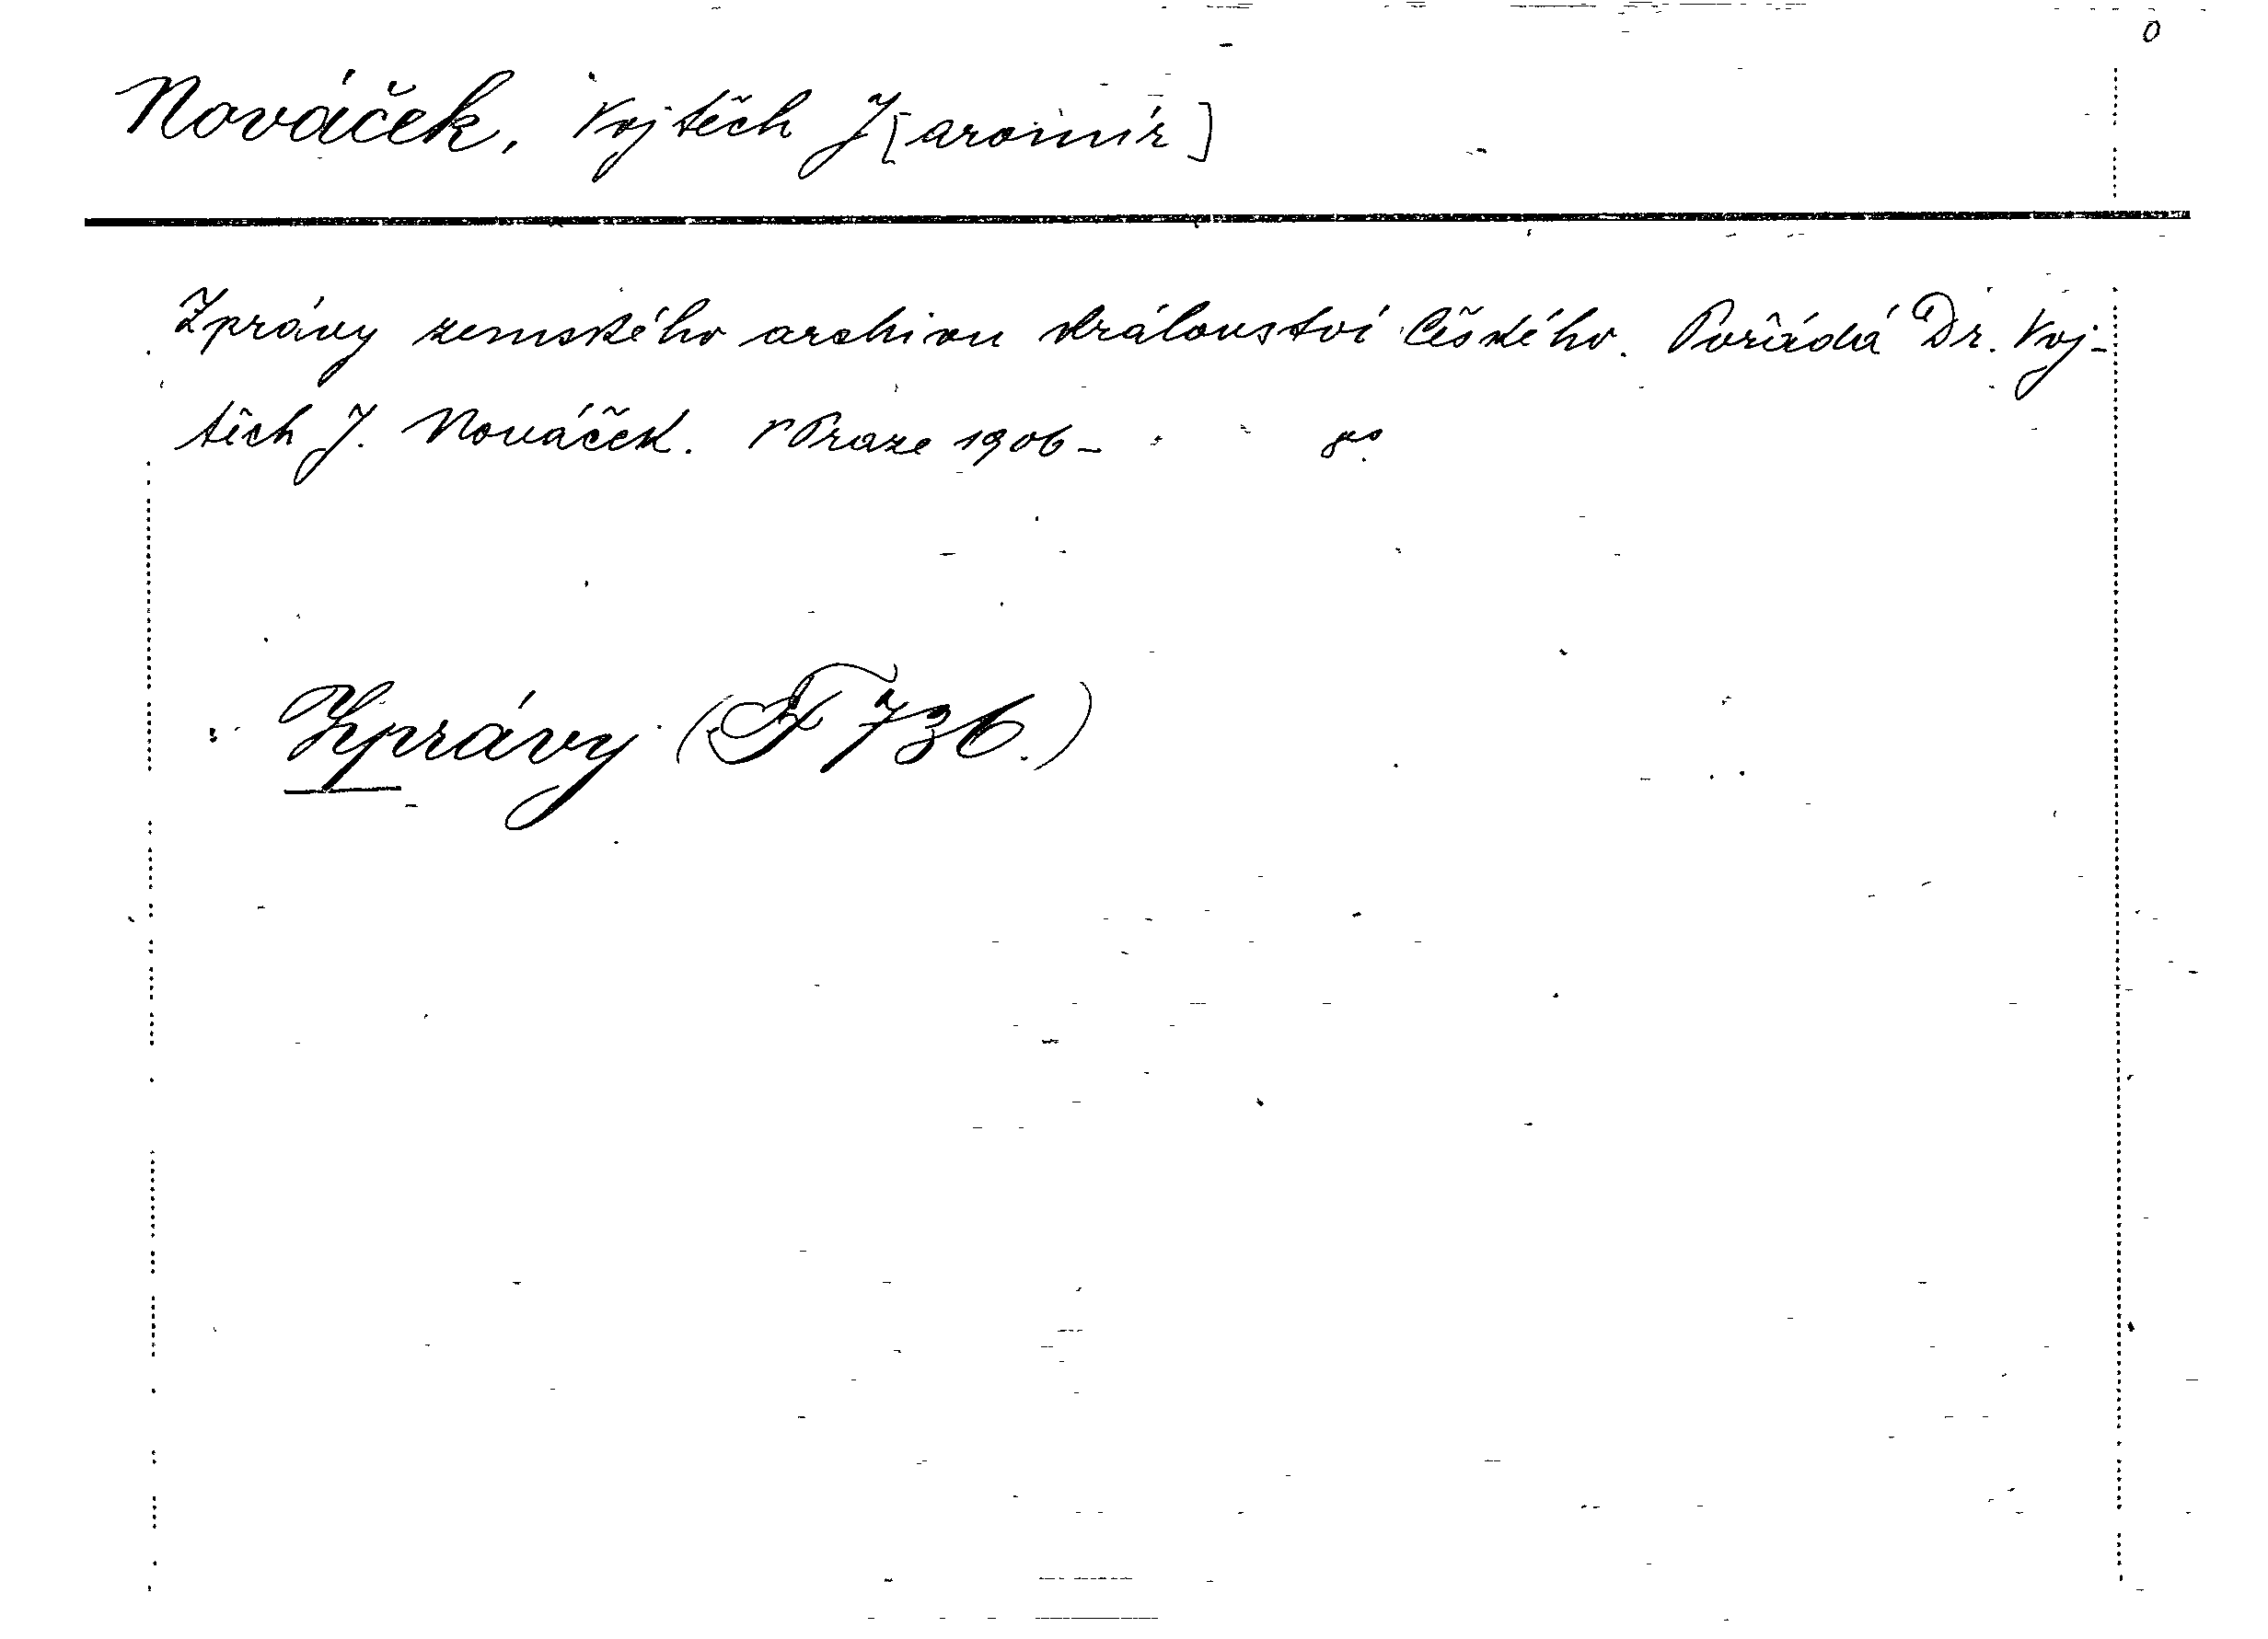 0
Nováček, Vojtěch J[aromír]
Zprávy zemského archivu království Českého. Pořádá Dr. Voj-
těch J. Nováček. V Praze 1906- 8°.
Zprávy (F 736.)